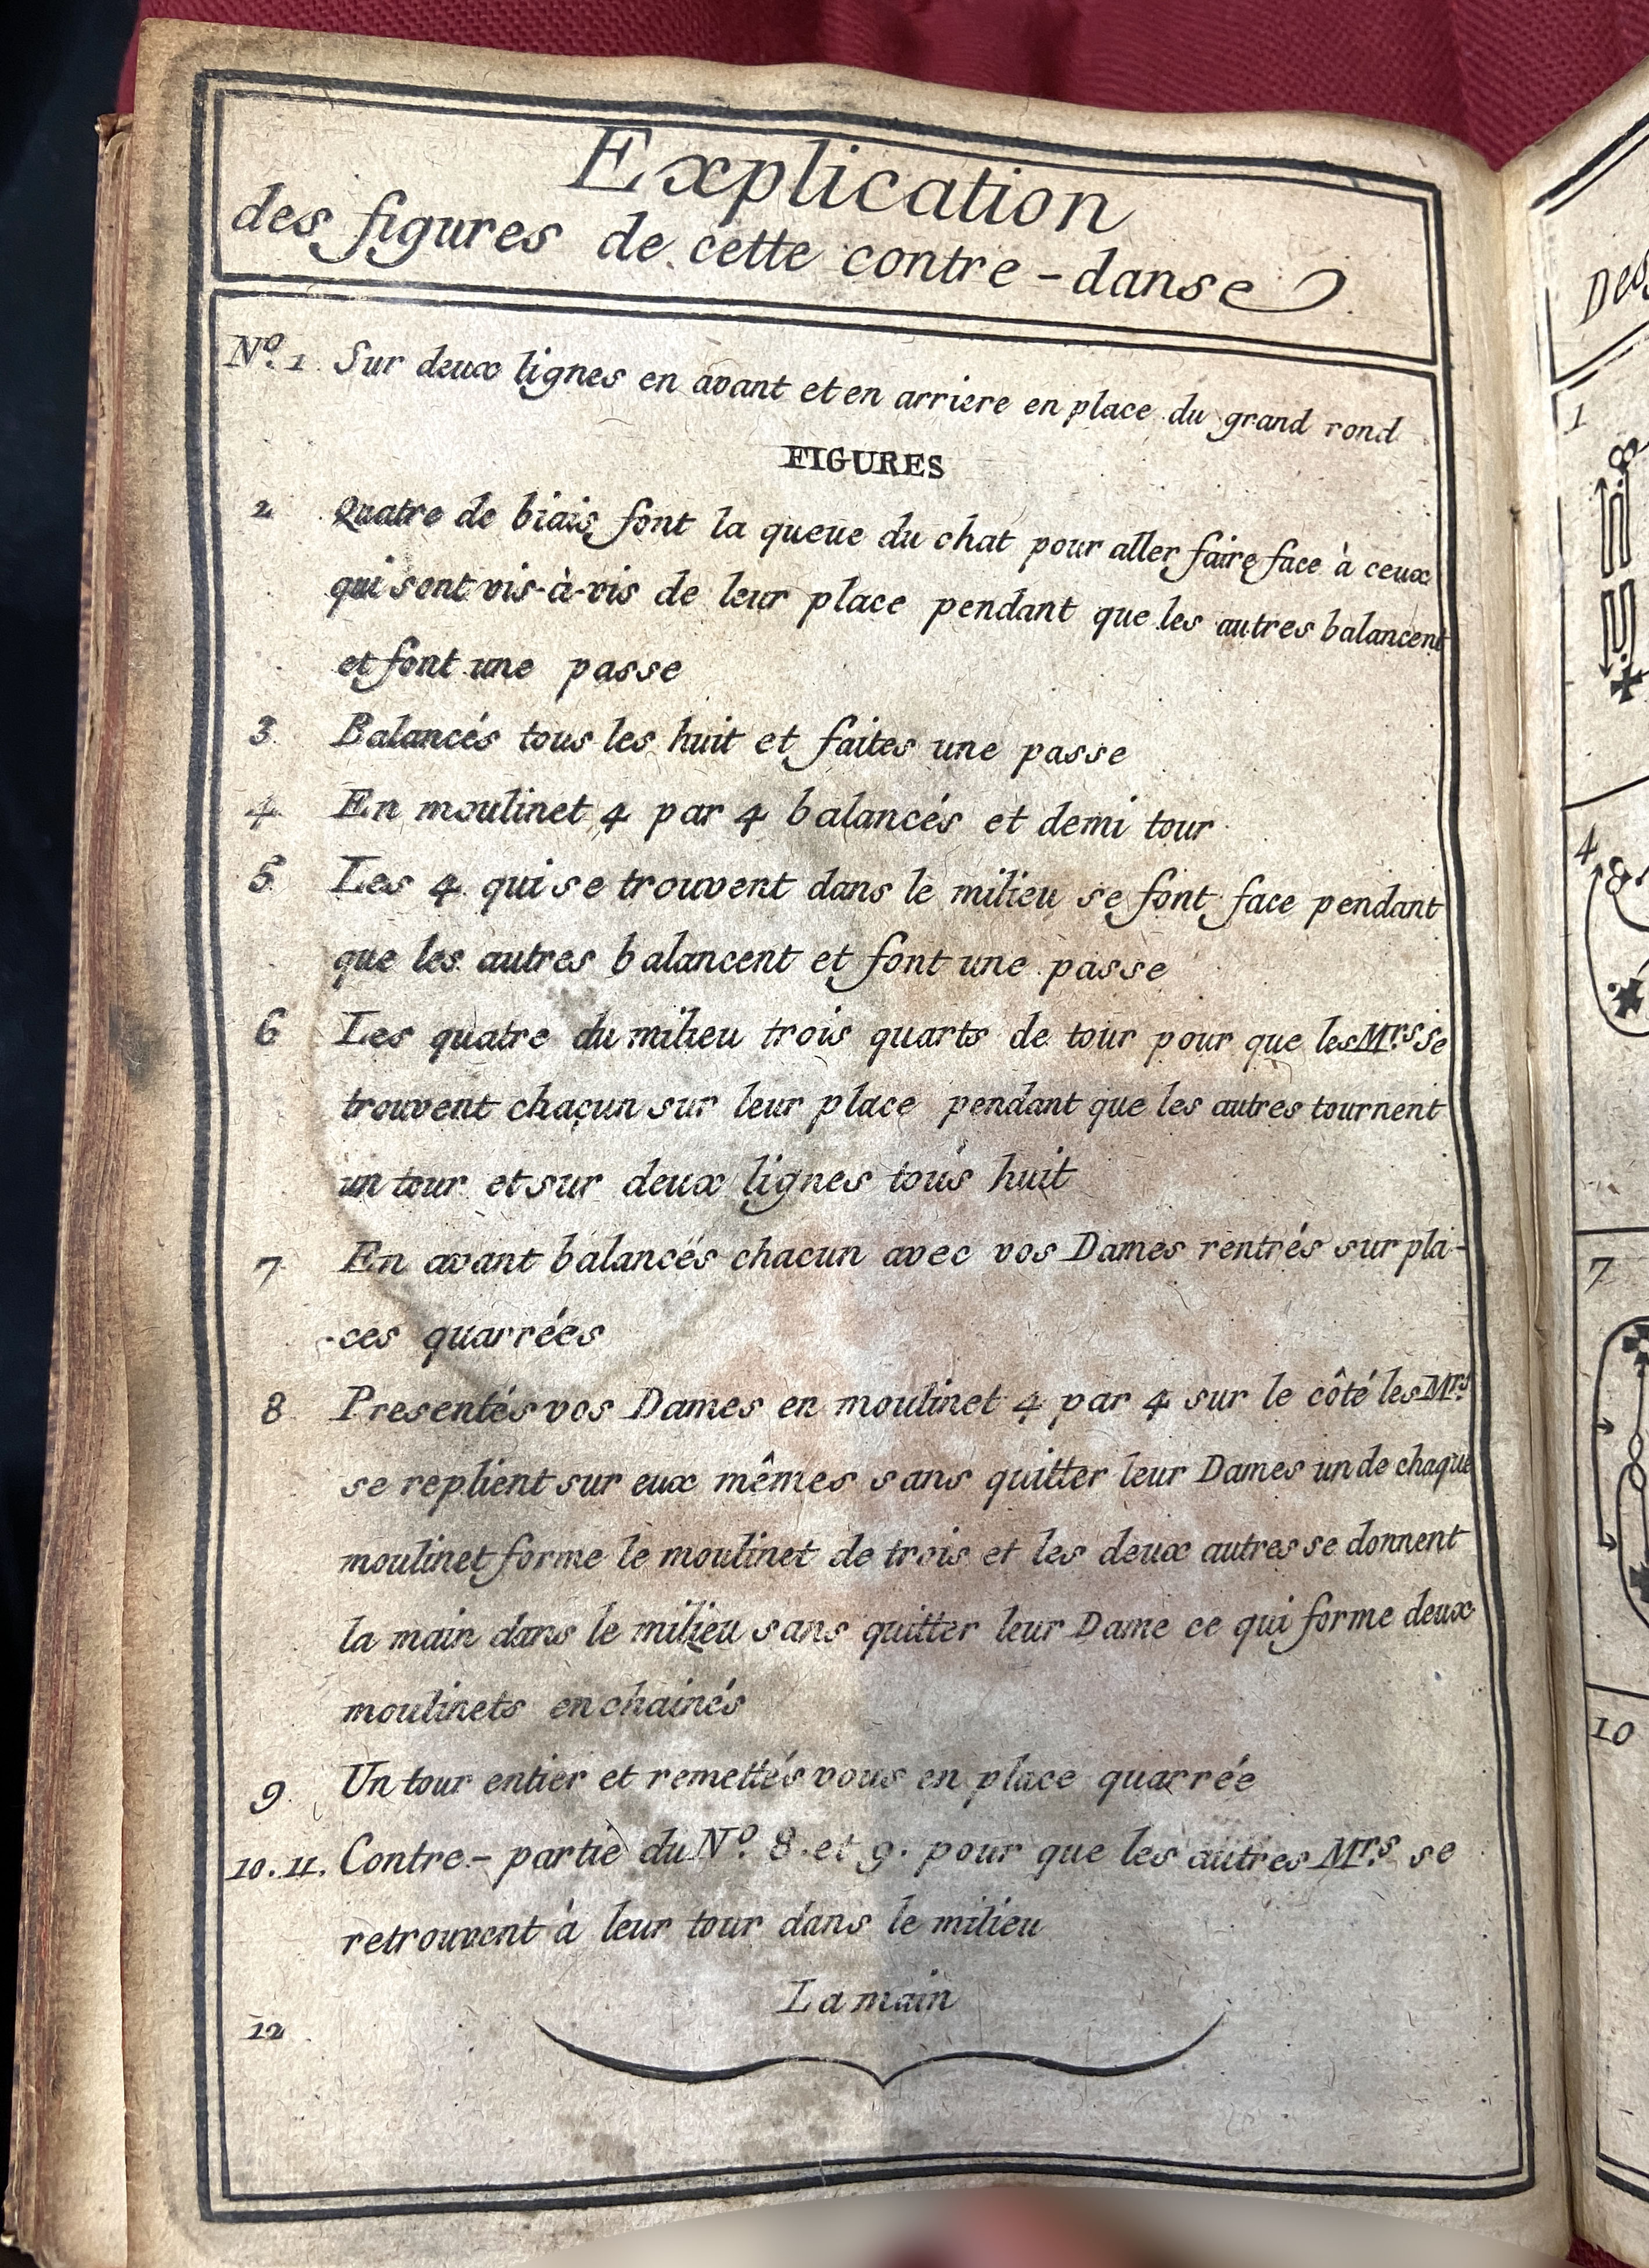 Explication
des figures de cette contre-danse
Nº. 1. Sur deux lignes en avant et en arriere en place du grand rond
FIGURES
2 Quatre de biais font la queue du chat pour aller faire face à ceux
qui sont vis-à-vis de leur place pendant que les autres balancent
et font une passe
3. Balancés tous les huit et faites une passe
4. En moulinet 4 par 4 balancés et demi tour
5. Les 4 qui se trouvent dans le milieu se font face pendant
que les autres balancent et font une passe
6 Les quatre du milieu trois quarts de tour pour que les Mrs se
trouvent chacun sur leur place pendant que les autres tournent
un tour et sur deux lignes tous huit
7. En avant balancés chacun avec vos Dames rentrés sur pla-
-ces quarrées
8 Presentés vos Dames en moulinet 4 par 4 sur le côté les Mrs
se replient sur eux mêmes sans quitter leur Dames un de chaque
moulinet forme le moulinet de trois et les deux autres se donnent
la main dans le milieu sans quitter leur Dame ce qui forme deux
moulinets enchainés
9. Un tour entier et remettés vous en place quarrée
10. 11. Contre-partie du Nº. 8. et 9. pour que les autres Mrs. se
retrouvent à leur tour dans le milieu
La main
12
Des
1
4
7
10